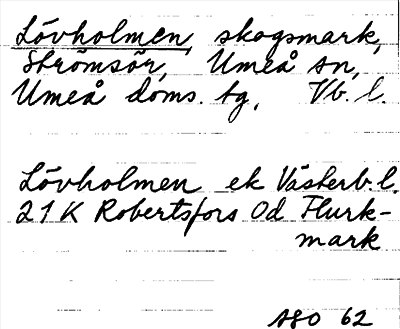 Lövholmen, skogsmark,
Strömsör, Umeå sn,
Umeå doms. tg, Vb. l.
Lövholmen ek Västerb. l.
21K Robertsfors 0d Flurk-
mark
ASO 62